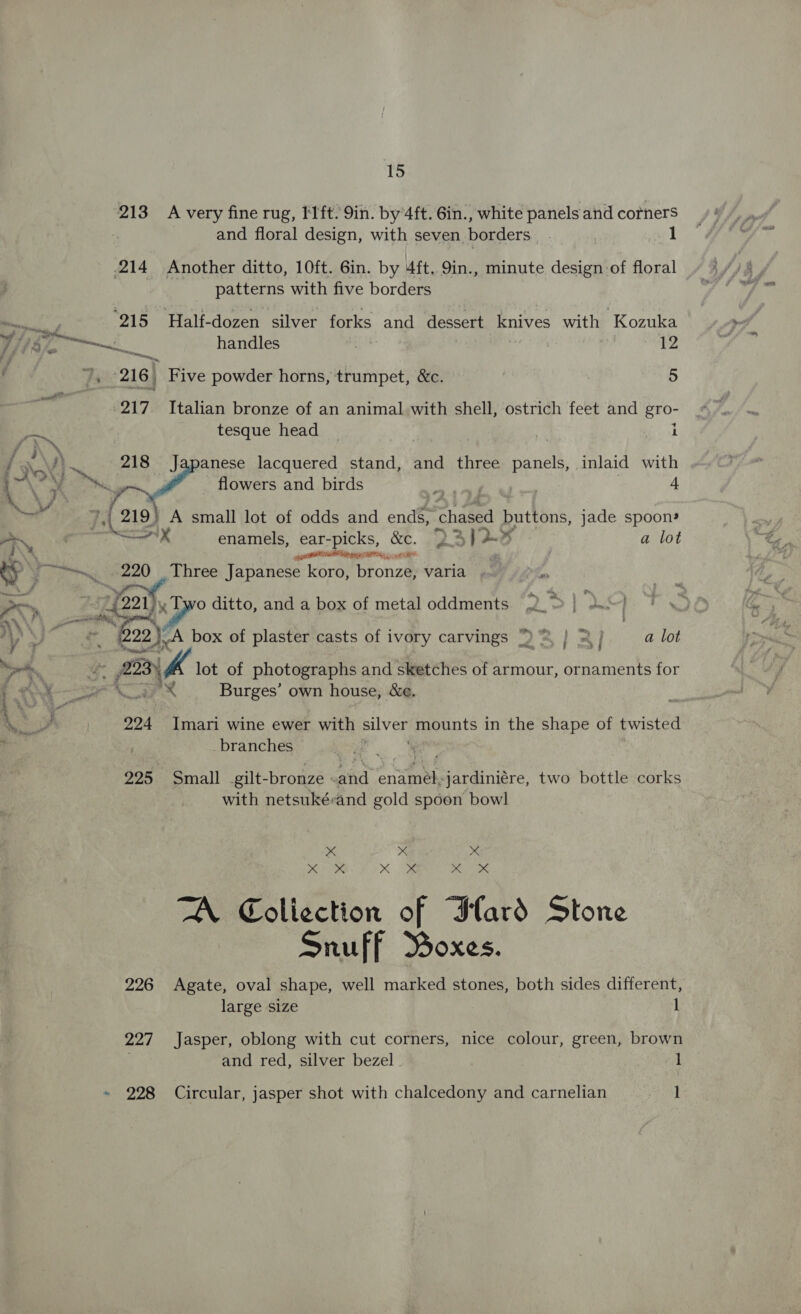 15
213 A very fine rug, 11ft. 9in. by 4ft. 6in., white panels and corners
and floral design, with seven borders 1
214 Another ditto, 10ft. 6in. by 4ft. 9in., minute design of floral
patterns with five borders
215 Half-dozen silver forks and dessert knives with Kozuka
handles 12
216 Five powder horns, trumpet, &c. 5
217 Italian bronze of an animal with shell, ostrich feet and gro-
tesque head 1
218 Japanese lacquered stand, and three panels, inlaid with
flowers and birds 4
219 A small lot of odds and ends, chased buttons, jade spoons
enamels, ear-picks, &c. a lot
220 Three Japanese koro, bronze, varia
221 Two ditto, and a box of metal oddments
222 A box of plaster casts of ivory carvings a lot
223 A lot of photographs and sketches of armour, ornaments for
Burges' own house, &c.
224 Imari wine ewer with silver mounts in the shape of twisted
branches
225 Small gilt-bronze and enamel jardinière, two bottle corks
with netsuké and gold spoon bowl
x x x
x x x x x x
A Collection of Hard Stone
Snuff Boxes.
226 Agate, oval shape, well marked stones, both sides different,
large size 1
227 Jasper, oblong with cut corners, nice colour, green, brown
and red, silver bezel 1
228 Circular, jasper shot with chalcedony and carnelian 1